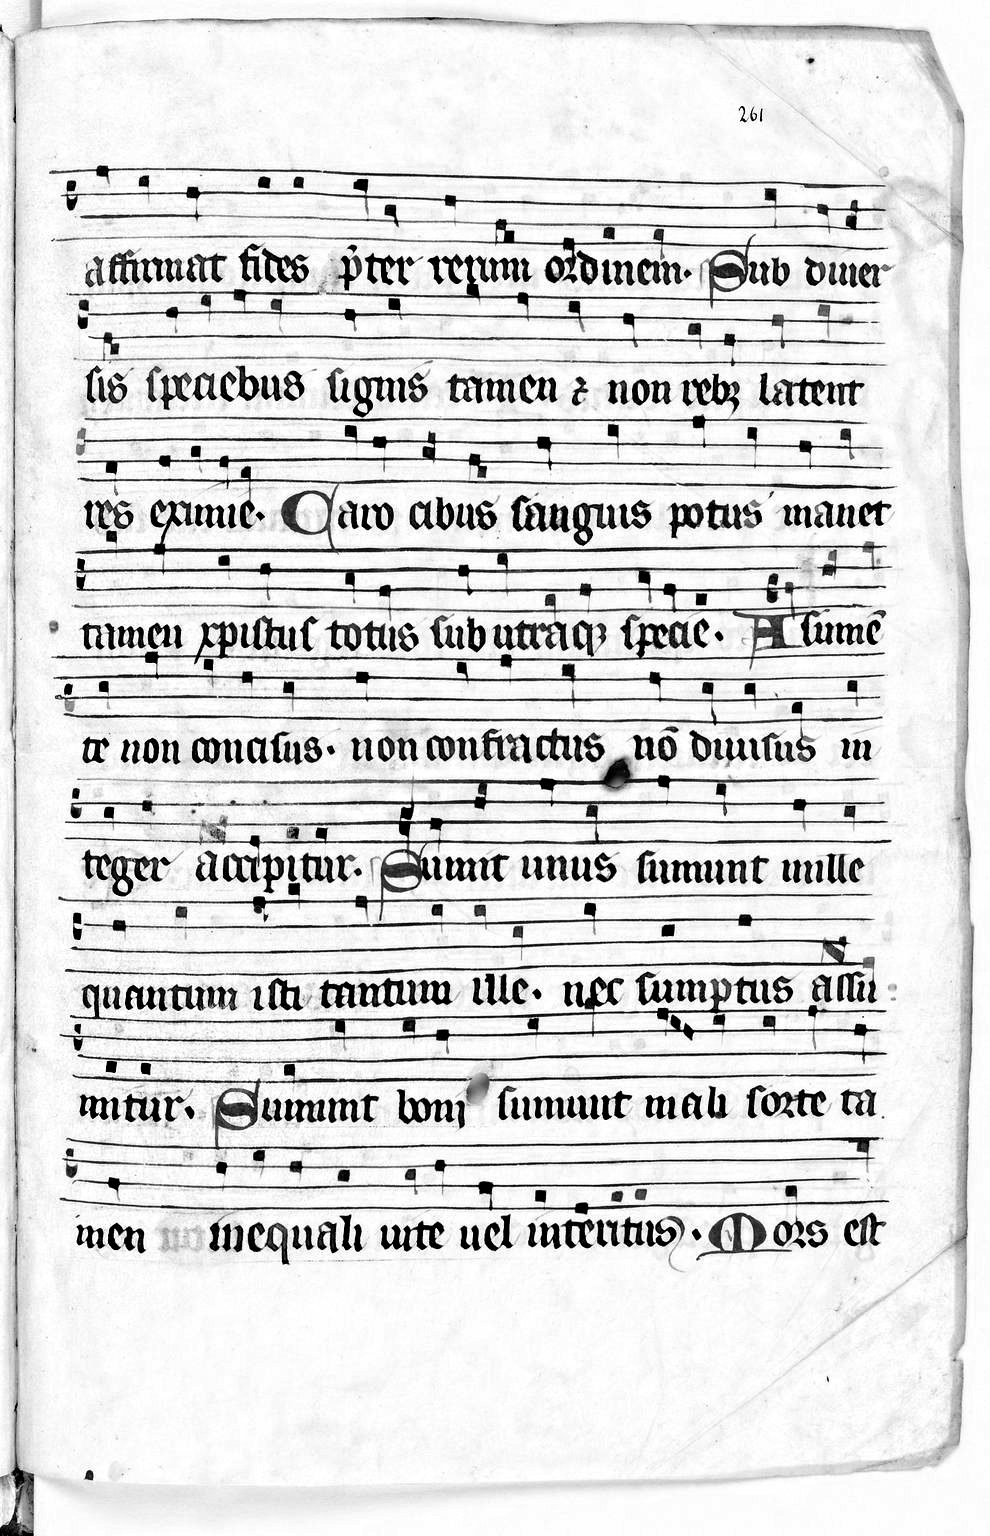 261
affirmat fides p̄ter rerum ordinem. Sub diuer
sis speciebus signis tamen ⁊ non rebꝫ latent
res eximie. Caro cibus sanguis potus manet
tamen xpistus totus sub utraqꝫ specie. A sumē
te non concisus. non confractus nō diuisus in
teger accipitur. Sumit unus sumunt mille
quantum isti tantum ille. nec sumptus assu
mitur. Sumunt bonj sumunt mali sorte ta
men inequali uite uel interitus. Mors est